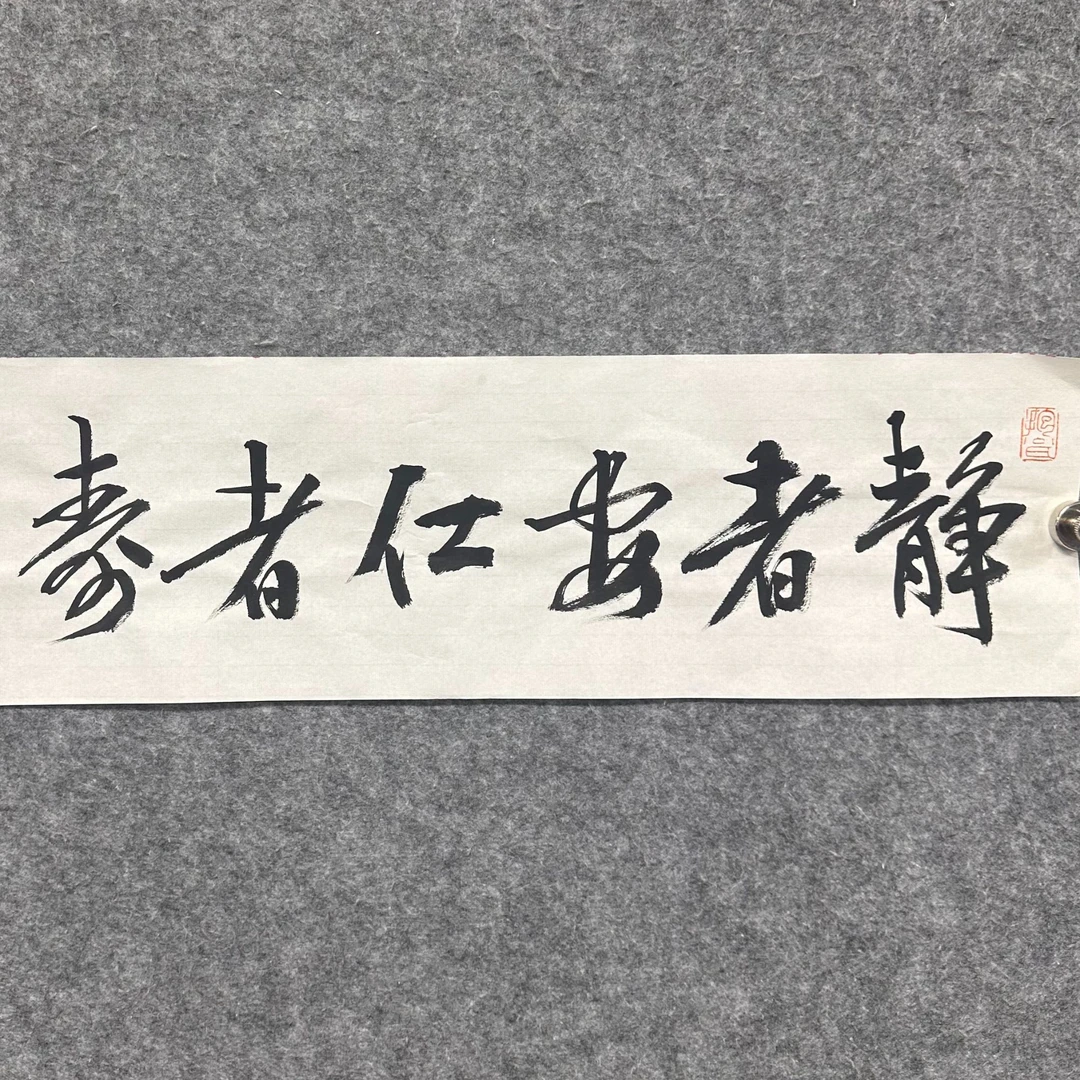 静者安仁者寿